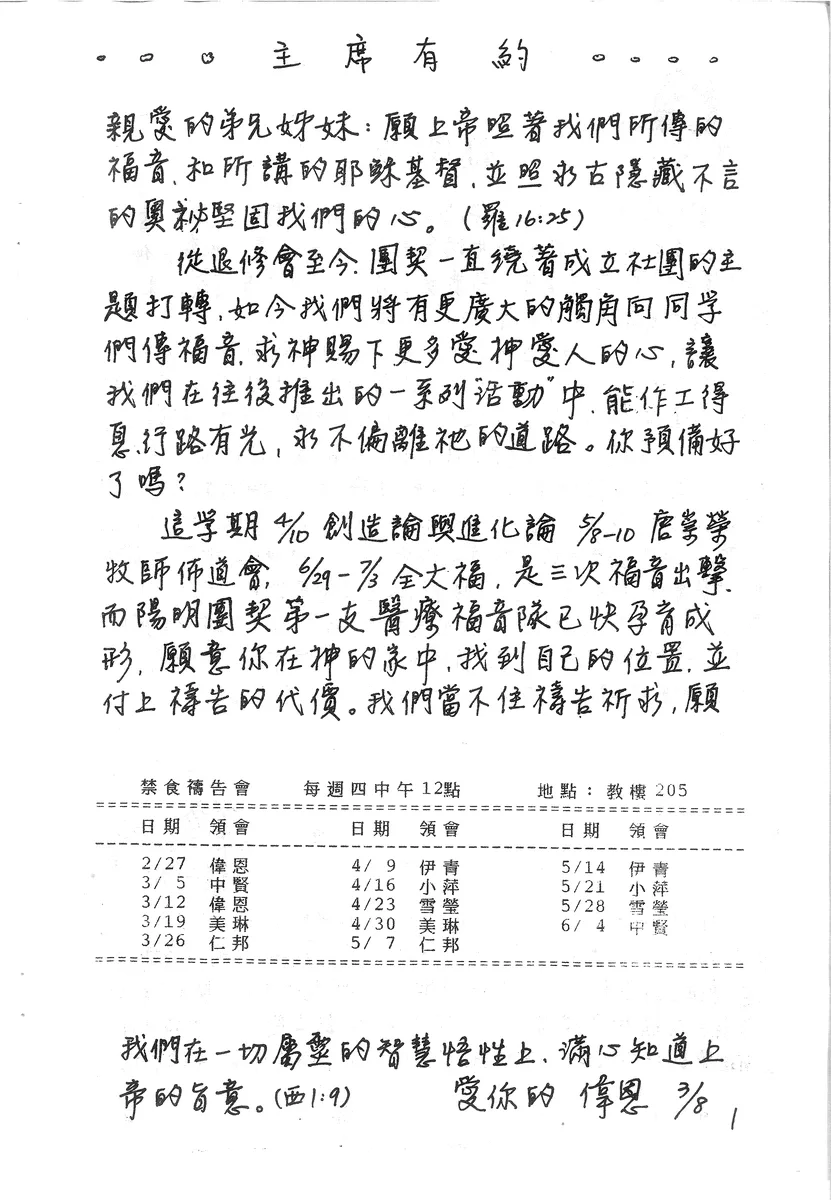 。。。主席有約。。。。
親愛的弟兄姊妹：願上帝照著我們所傳的
福音、和所講的耶穌基督，並照永古隱藏不言
的奧祕堅固我們的心。（羅16:25）
從退修會至今，團契一直繞著成立社團的主
題打轉，如今我們將有更廣大的觸角向同学
們傳福音，求神賜下更多愛神愛人的心，讓
我們在往後推出的一系列"活動"中，能作工得
息、行路有光，永不偏離祂的道路。你預備好
了嗎？
這学期 4/10 創造論與進化論 5/8-10 唐崇榮
牧師佈道會，6/29-7/3 全大福，是三次福音出擊，
而陽明團契第一支醫療福音隊已快孕育成
形，願意你在神的家中，找到自己的位置，並
付上禱告的代價。我們當不住禱告祈求，願
禁食禱告會 每週四中午12點 地點：教樓205
日期 領會 日期 領會 日期 領會
2/27 偉恩 4/ 9 伊青 5/14 伊青
3/ 5 中賢 4/16 小萍 5/21 小萍
3/12 偉恩 4/23 雪瑩 5/28 雪瑩
3/19 美琳 4/30 美琳 6/ 4 中賢
3/26 仁邦 5/ 7 仁邦
我們在一切屬靈的智慧悟性上，滿心知道上
帝的旨意。(西1:9) 愛你的 偉恩 3/8
1